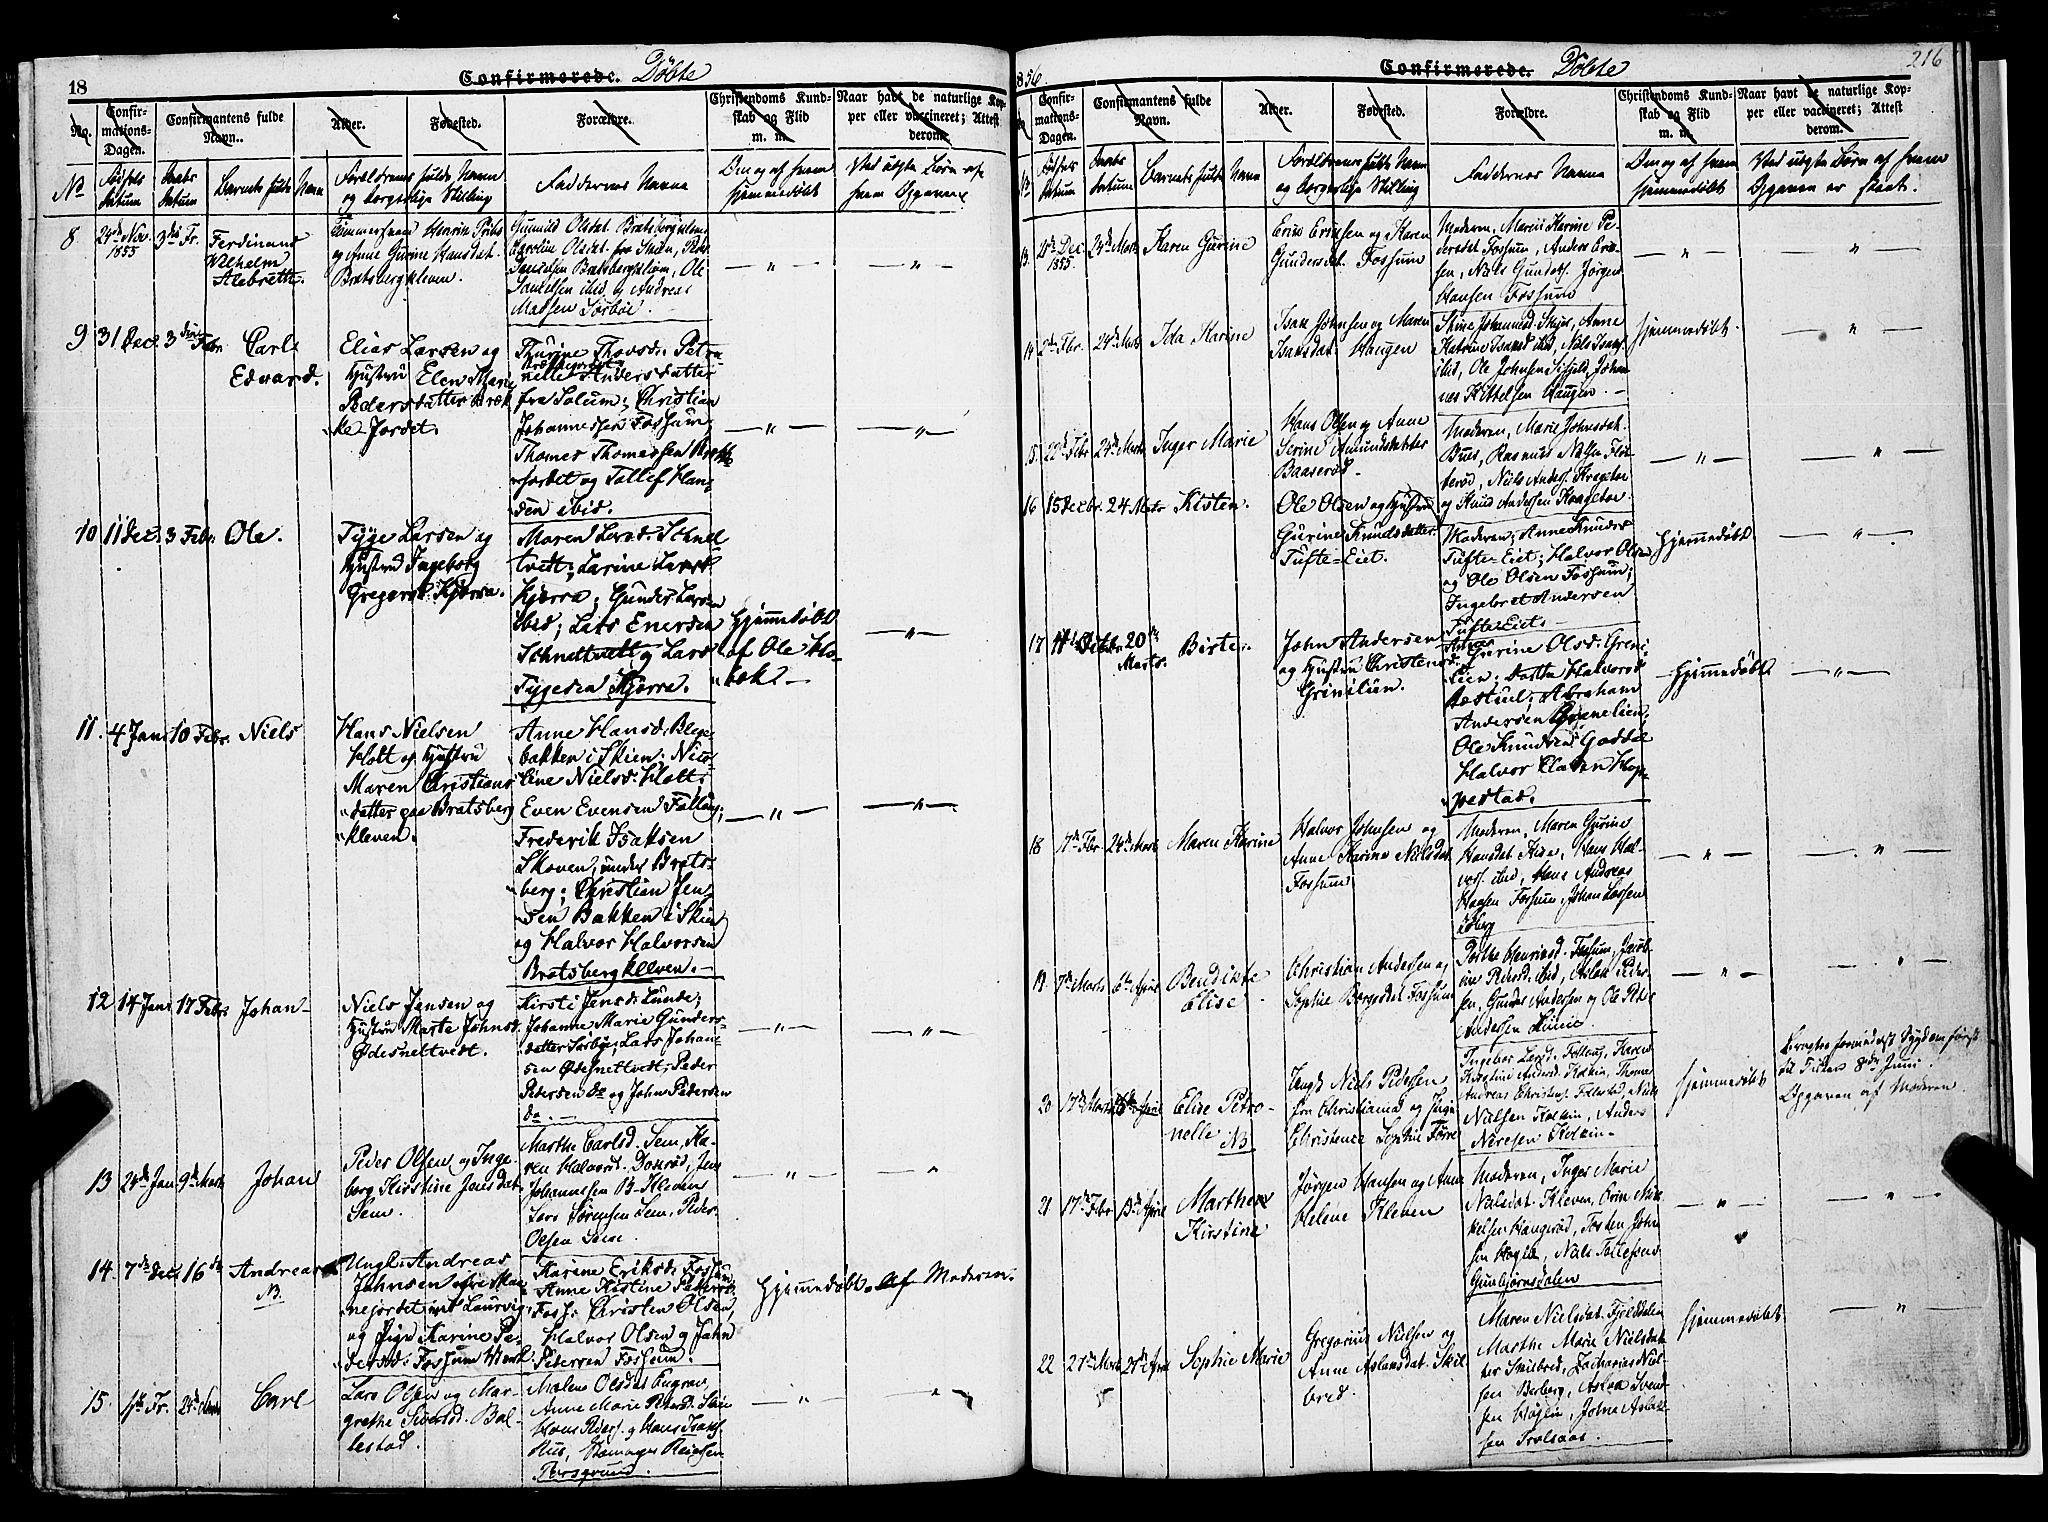 18
Confirmerede. Döbte
No.
Confir-
mations-
Dagen.
Confirmantens fulde
Navn.
Alder.
Fødested.
Forældre.
Christendoms Kund-
skab og Flid
m. m.
Naar havt de naturlige Kop-
per eller vaccineret; Attest
derom.
No
Fødsels
datum
Daabs
datum
Barnets fulde Navn
Forældrenes fulde Navn
og borgerlige Stilling
Faddernes Navne
Om og af hvem
hjemmedöbt
Ved uægte Børn af
hvem Opgaven
8
24de Nov.
1855
3die Fr.
Ferdinand
Vilhelm
Albreth.
Tømmermand Henrik
og Anne Gurine Hansdat.
Bratsbergkleven.
Gunild Olsdat. Bratsbergkleven
Caroline Olsdat. fra Skien,
Danielsen Bratsbergkleven, Ole
Danielsen ibid og Andreas
Madsen Sörböe.
— " —
— " —
9
31 Dec.
3die Febr.
Carl
Edvard.
Elias Larsen og
Hustru Elen Marie
Pedersdatter Bræk-
ke-Jordet.
Thurine Thovsd:
Petro-
nelle Andersdatter
fra Solum; Christian
Johannessen Fossum;
Thomes Thomessen Brekke-
jordet og Tollef Han-
sen ibid.
— " —
— " —
10
11 Dec.
3 Febr.
Ole.
Tyge Larsen og
Hustru Ingeborg
Gregersd. Kjørra.
Maren Larsd: Schnel-
tvedt; Larine Larsd:
Kjørra; Gunder Larsen
ibid; Lars Enersen
Schneltvett og Lars
Tygesen Kjørra.
Hjemmedöbt
af Ole Ho-
bæk?—
— " —
11.
4 Jan
10 Febr.
Niels
Hans Nielsen
Holt og Hustru
Maren Christians-
datter paa Bratsberg
kleven.
Anne Hansd. Blege-
bakken i Skien; Nico-
line Nielsd: Holt;
Even Evensen Follaug;
Frederik Isaksen
Skoven, under Brats-
berg; Christian Jen-
sen Bakken i Skien
og Halvor Halvorsen
Bratsbergkleven.—
— " —
— " —
12
14 Jan
17 Febr
Johan—
Niels Jensen og
Hustru Marte Johnsd.
Ødesneltvedt.
Kirsti Jensd: Lunde;
Johanne Marie Gunders-
datter Sørbøe; Lars Johan-
sen Ødesneltvedt; Peder
Pedersen do og John Pedersen
do.—
— " —
— " —
13
24de Jan
9de Marts
Johan
Peder Olsen og Inge-
borg Kirstine Jensdat.
Sem.
Marthe Carlsd. Sem, Ka-
ren Halvorsd. Doxrød, Jens
Johannssen B-Kleven
Lars Sørensen Sem, Peder
Olsen Sem.
— " —
"
14.
7de Dec.
16de
Andreas
NB.
Ungk. Andreas
Johnsen
nejordet ved Laurvig,
og Pige Karine Pe-
dersd: Fossum Værk
Karine Eriksd. Fossum
Anne Kistine Pedersd.
Foss: Christen Olsen,
Halvor Olsen og John
Pedersen Fossum.
Hjemmedöbt af Moderen.
15.
1ste Fr.
24de Marts
Carl
Lars Olsen og Mar-
grethe Siversd. Bal-
lestad.
Malene Olsdat
Anne Marie Pedersd. Skien
Hans Peders. og Hans Isaks.
Porsgrund.
— " —
"
1856.
Confirmerede. Döbte
216
Confir-
mations-
Dagen.
Confirmantens fulde
Navn.
Alder.
Fødested.
Forældre.
Christendoms Kund-
skab og Flid
m. m.
Naar havt de naturlige Kop-
per eller vaccineret; Attest
derom.
Fødsels
datum
Daabs
datum
Barnets fulde Navn
Forældrenes fulde Navn
og borgerlige Stilling
Faddernes Navne
Om og af hvem
hjemmedöbt
Ved uægte Børn af hvem
Opgaven er skeet.
13
Dec
1855.
24de Marts
Karen Gurine
Eriks Eriksen og Karen
Gundersdat. Fossum
Moderen, Maria Karine Pe-
dersdat. Fossum, Anders Erik-
sen, Niels Gunders. Jørgen
Hansen Fossum
— " —
"
14
2de Fbr.
24de Marts
Ida Karine
Isak Johnsen og Maren
Isaksdat. Haugen
Stine Johannesd. Anne
Katrine Isaksd. ibid, Niels Isaks.
ibid, Ole Johnsen Johan-
nes Kittelsen Haugen.—
hjemmedöbt
— " —
15
22de Fbr
24de Marts
Inger Marie
Hans Olsen og Anne
Serine Amundsdatter
Baaserød.
Moderen, Marie Johnsdat.
Bues, Rasmus Nilsen
Niels Anders.
og Knud Andersen
— " —
"
16
15 Decbr.
24 Marts
Kisten.
Ole Olsen og Hustru
Gurine Knudsdatter
Tufte-Eiet.
Moderen; Anne Knudsd.
Tufte-Eiet; Halvor Olsen
og Ole Olsen Fossum;
Ingebret Andersen
Tufte-Eiet.—
Hjemmedöbt
— " —
17
20de
Marts.
Birte.
John Andersen
og Hustru Christense
Grinilien.
Anne Gurine Olsd. Greni-
lien; Dorthe Halvorsd.
Bestul; Abraham
Andersen Grenelien,
Ole Knudsen Goddal
Halvor Clasen Hop-
pestad.
Hjemmedöbt
— " —
18
7de Fbr.
24de Marts
Maren Karine
Halvor Johnsen og
Anne Karine Nielsdat.
Fossum
Moderen, Maren Gurine
Hansdat. Kise, Hans Hal-
vors. ibid, Hans Andreas
Hansen Fossum, Johan Larsen
— " —
— " —
19
7de Marts
6te April
Bendikte
Elise
Christian Andersen og
Sophie Borgesdat. Fossum
Dorthe Henriksd. Fossum, Jacob-
ine Pedersd. ibid, Aslak Peder-
sen, Gunder Andersen og Ole Peter
Andersen Lunde.
— " —
— " —
20
17de Marts
April
Elise Petro-
nelle NB
Ungk. Niels Pedersen
fra Christiania og Pige
Christence Sophie
Ingebor Larsd. Follaug, Karen
Kirstine Andersd. Kolkin, Thomas
Andreas Christens. Niels
Nielsen Kolkin, Anders
Nielsen Kolkin—
hjemmedöbt
8de Juni
Opgaven af Moderen.
21
17de Fbr
13de April
Marthea
Kirstine
Jørgen Hansen og Anne
Helene Kleven
Moderen, Inger Marie
Nielsdat. Kleven,
Haugerød, Torsten John-
sen Høgli, Niels Tollefsen
Gunbjørnsdalen
— " —
"
22
27de Marts
27de April
Sophie Marie
Gregorius Nielsen og
Anne Aslaksdat. Skil-
bred.
Maren Nielsdat. Fjelddalen
Marthe Marie Nielsdat-
ter Skilbred, Zacharias Niel-
sen Berberg, Aslak Svend-
sen Høglie, John Aslak-
sen Trolsaas.
hjemmedöbt
— " —